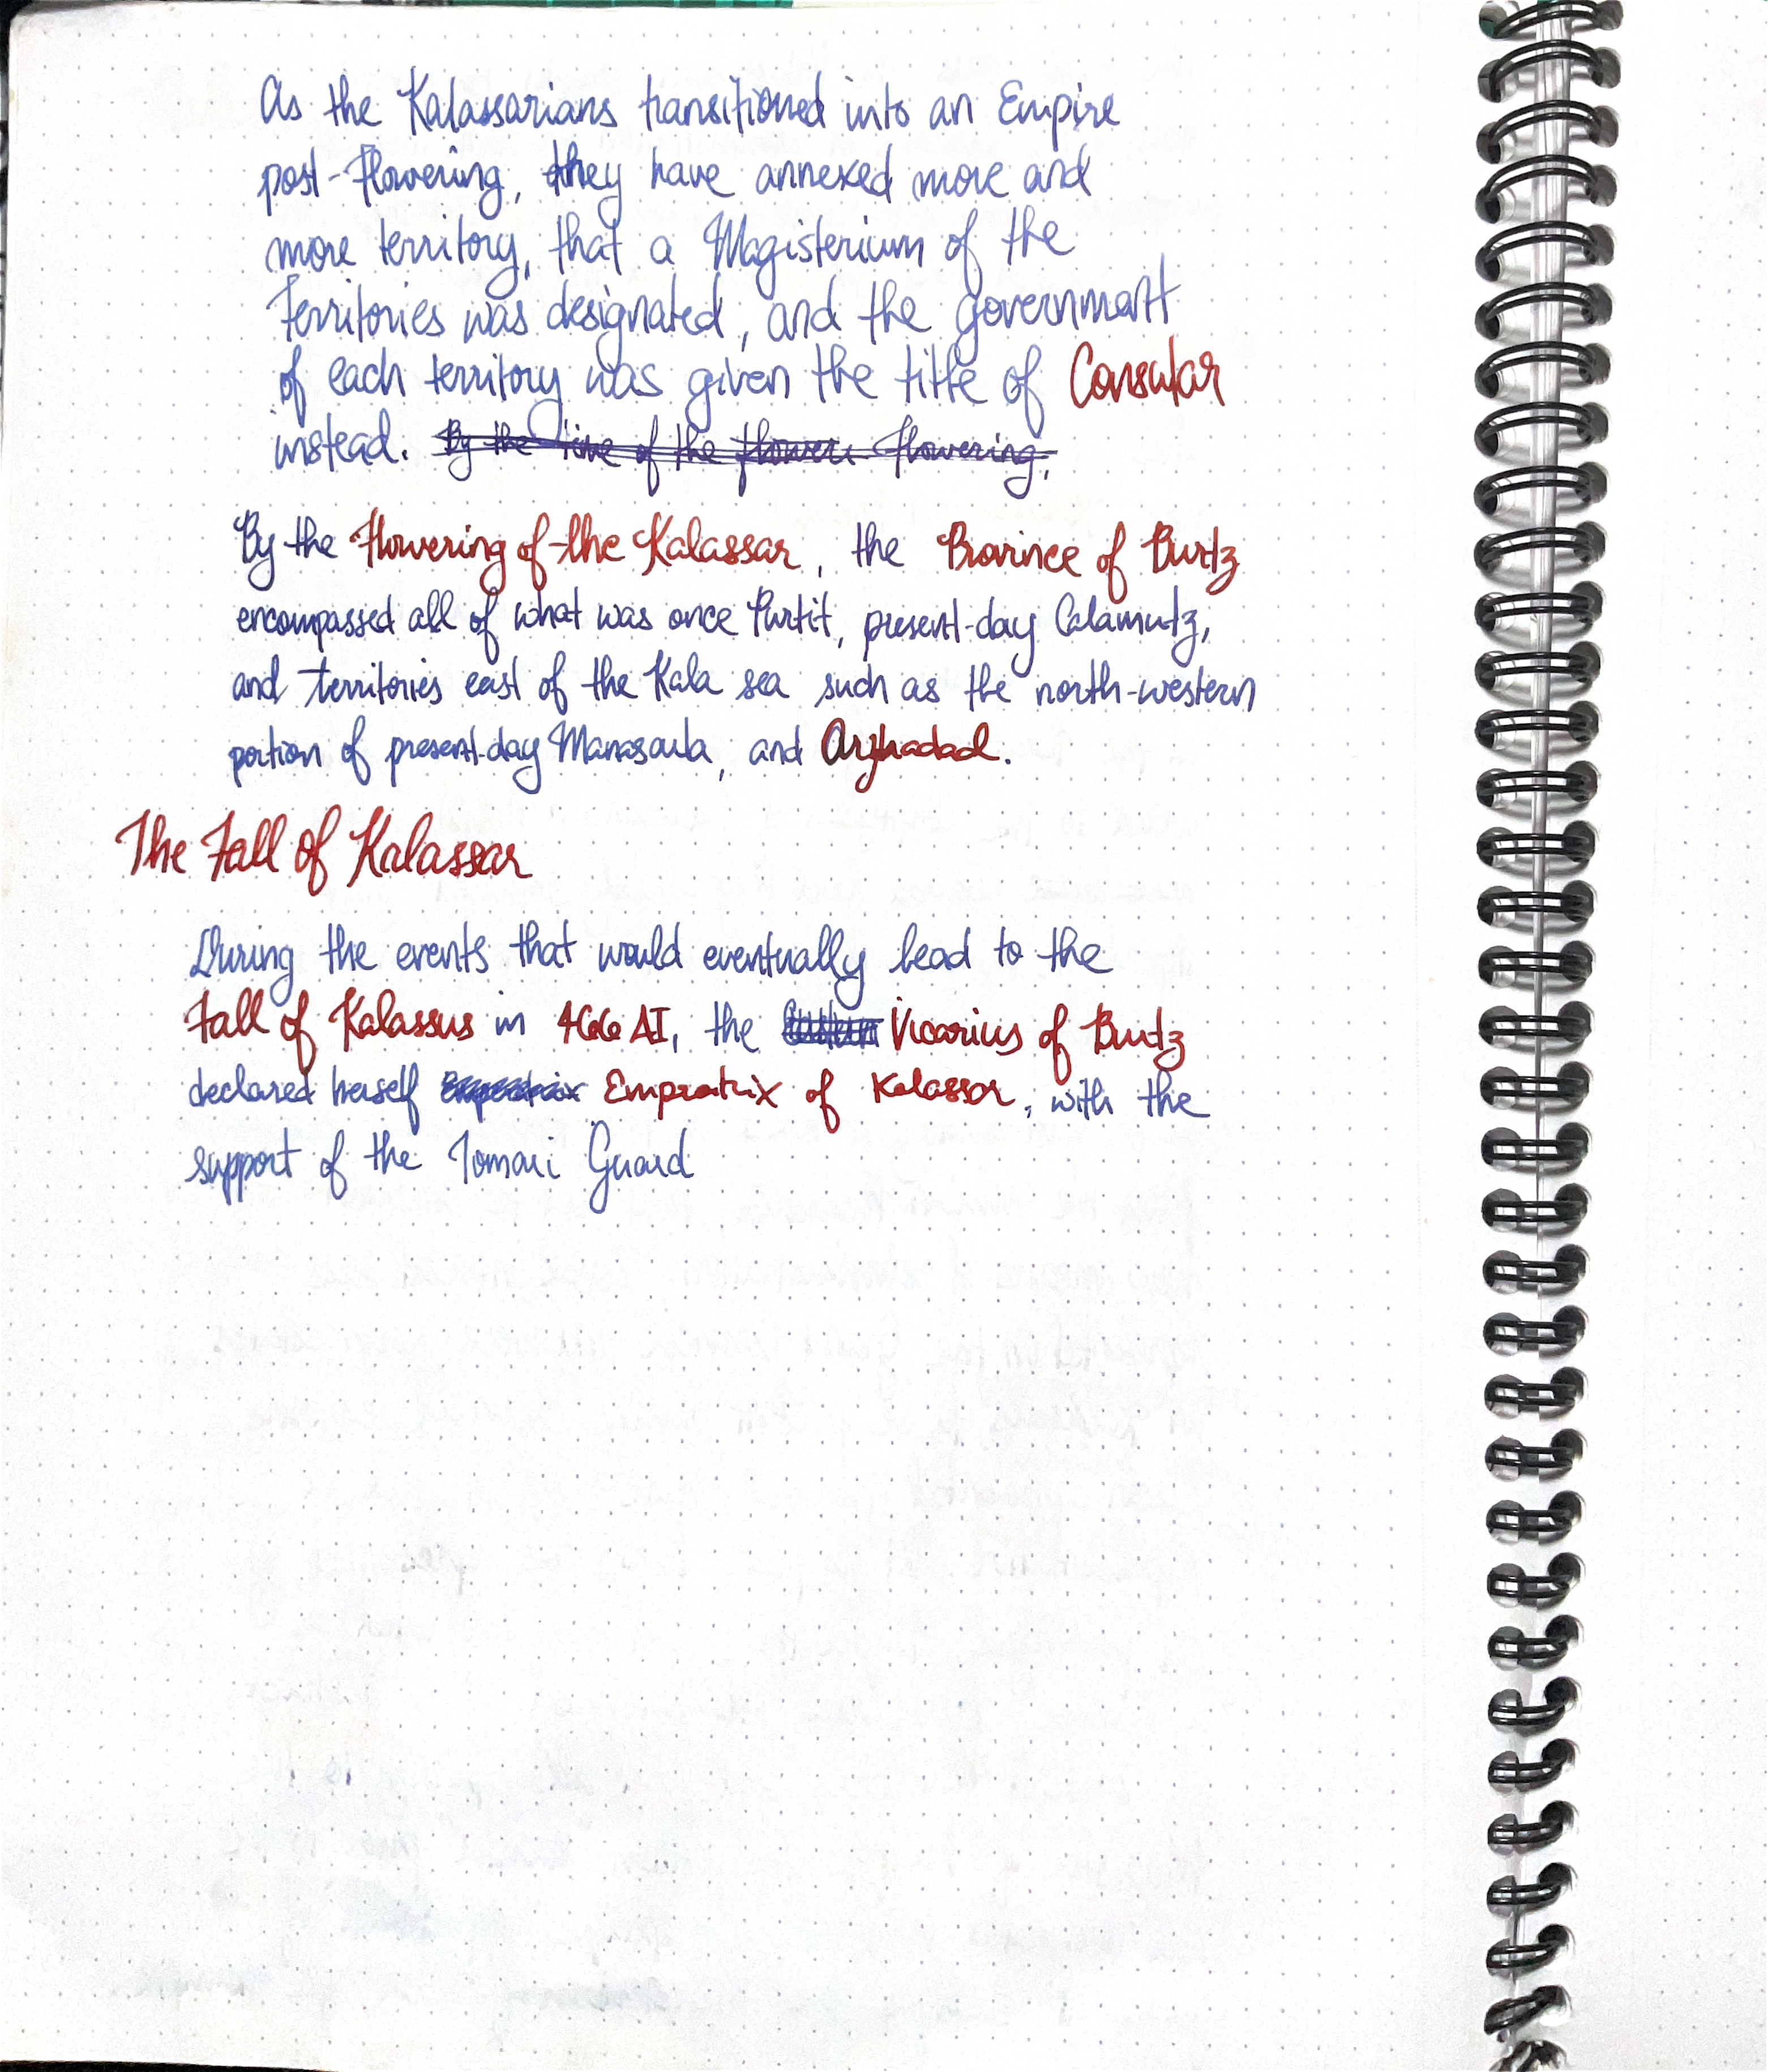 As the Kalassarians transitioned into an Empire
post-Flowering, they have annexed more and
more territory, that a Magisterium of the
Territories was designated, and the government
of each territory was given the title of Consular
instead. By the time of the flower Flowering,
By the Flowering of the Kalassar, the Province of Burtz
encompassed all of what was once Purtit, present-day Calamutz,
and territories east of the Kala sea such as the north-western
portion of present-day Manasarla, and Arghadad.
The Fall of Kalassar
During the events that would eventually lead to the
Fall of Kalassus in 466 AI, the Vicarius of Burtz
declared herself Empratrix of Kalassar, with the
support of the Tomari Guard